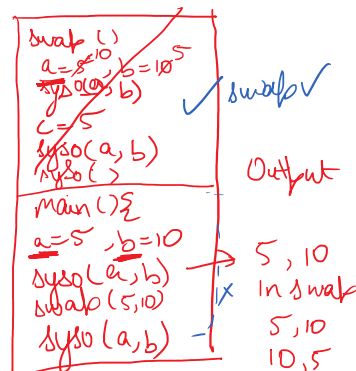 swap ()
a=5 10, b=10 5
syso(a, b)
c=5
syso(a, b)
syso()
✓ swap ✓
Output
main(){
a=5, b=10
syso(a, b) → 5, 10
swap(5,10) x in swap
syso(a, b) 5, 10
10, 5